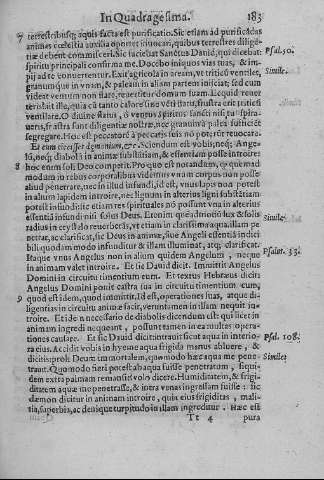 In Quadragesima. 183
7 terrestribusq; aquis facta est purificatio. Sic etiam ad purificādas
animas cœlestia auxilia oportet invocar, quibus terrestres diligē-
tiæ debent commisceri. Sic faciebat Sanctus David, qui dicebat Psal. 50.
spiritu principali confirma me. Docebo iniquos vias tuas, & im-
pij ad te convertentur. Exit agricola in aream, vt tritici ventilet, Simile.
granumque in vnam, & paleam in aliam partem inijciat; sed cum
videat ventum non flare, revertitur domum suam. Ecquid rever
teris
ventilare. O divine flatus, ô ventus
veris, frustra sunt diligentiæ nostræ, nec granum à palea sufficiet
segregare. Hoc est peccatorē à peccatis suis nō pot; rūt revocara.
Et cum eiecisset dæmonium, &c. Sciendum est vobis, neq; Ange-
lū, neq; diabolū in animæ substātiam, & essentiam posse introire:
8 hoc enim soli Deo competit. Pro quo est notandum, quemad
modum in rebus corporalibus videmus vnum corpus non posse
aliud penetrare, nec in illud infundi, id est, vnus lapis non potest
in alium lapidem introire, nec lignum in alterius ligni substātiam
potest infundi: sic etiam res spirituales nō possunt vna in alterius
essentiā infundi nisi solus Deus. Etenim quēadmodū lux & solis
radius in crystallo reverberās, vt etiam in clarissima aqua illam pe Simile.
netrat, ac clarificat, sic Deus in animæ, sive Angeli essentiā indici
bili quodam modo infunditur & illam illuminat, atq; clarificat. Psalm. 33.
Itaque vnus Angelus non in alium quidem Angelum, neque
in animam valet introire. Et ita David dicit. Immittit Angelus
Domini in circuitu timentium eum. Et textus Hebraeus dicit:
Angelus Domini ponit castra sua in circuitu timentium eum,
9 quod est idem, quod immittit. Id est, operationes suas, atque di-
ligentias in circuitu animæ facit, verumtamen in illam nequit in-
troire. Et idē necessario de diabolis dicendum est: qui licet in
animam ingredi nequeant, possunt tamen in ea multas opera-
tiones causare. Et sic David dicit: intravit sicut aqua in interio- Psal. 108.
ra eius. Accidit vobis in hyeme aqua frigida manus abluere, &
dicitis: proh Deum immortalem, quomodo hæc aqua me pene- Simile.
traut. Quomodo fieri potest ab aqua fuisse penetratum, siqui-
dem extra palmam remansit? volo dicere. Humiditatem, & frigi
ditatem aquæ me penetrasse, & intra venas ingressam fuisse: sic
dæmon dicitur in animam introire, quia eius frigiditas, mali-
tia, superbia, ac denique turpitudo in illam ingreditur. Hæc est
Tt 4 pura